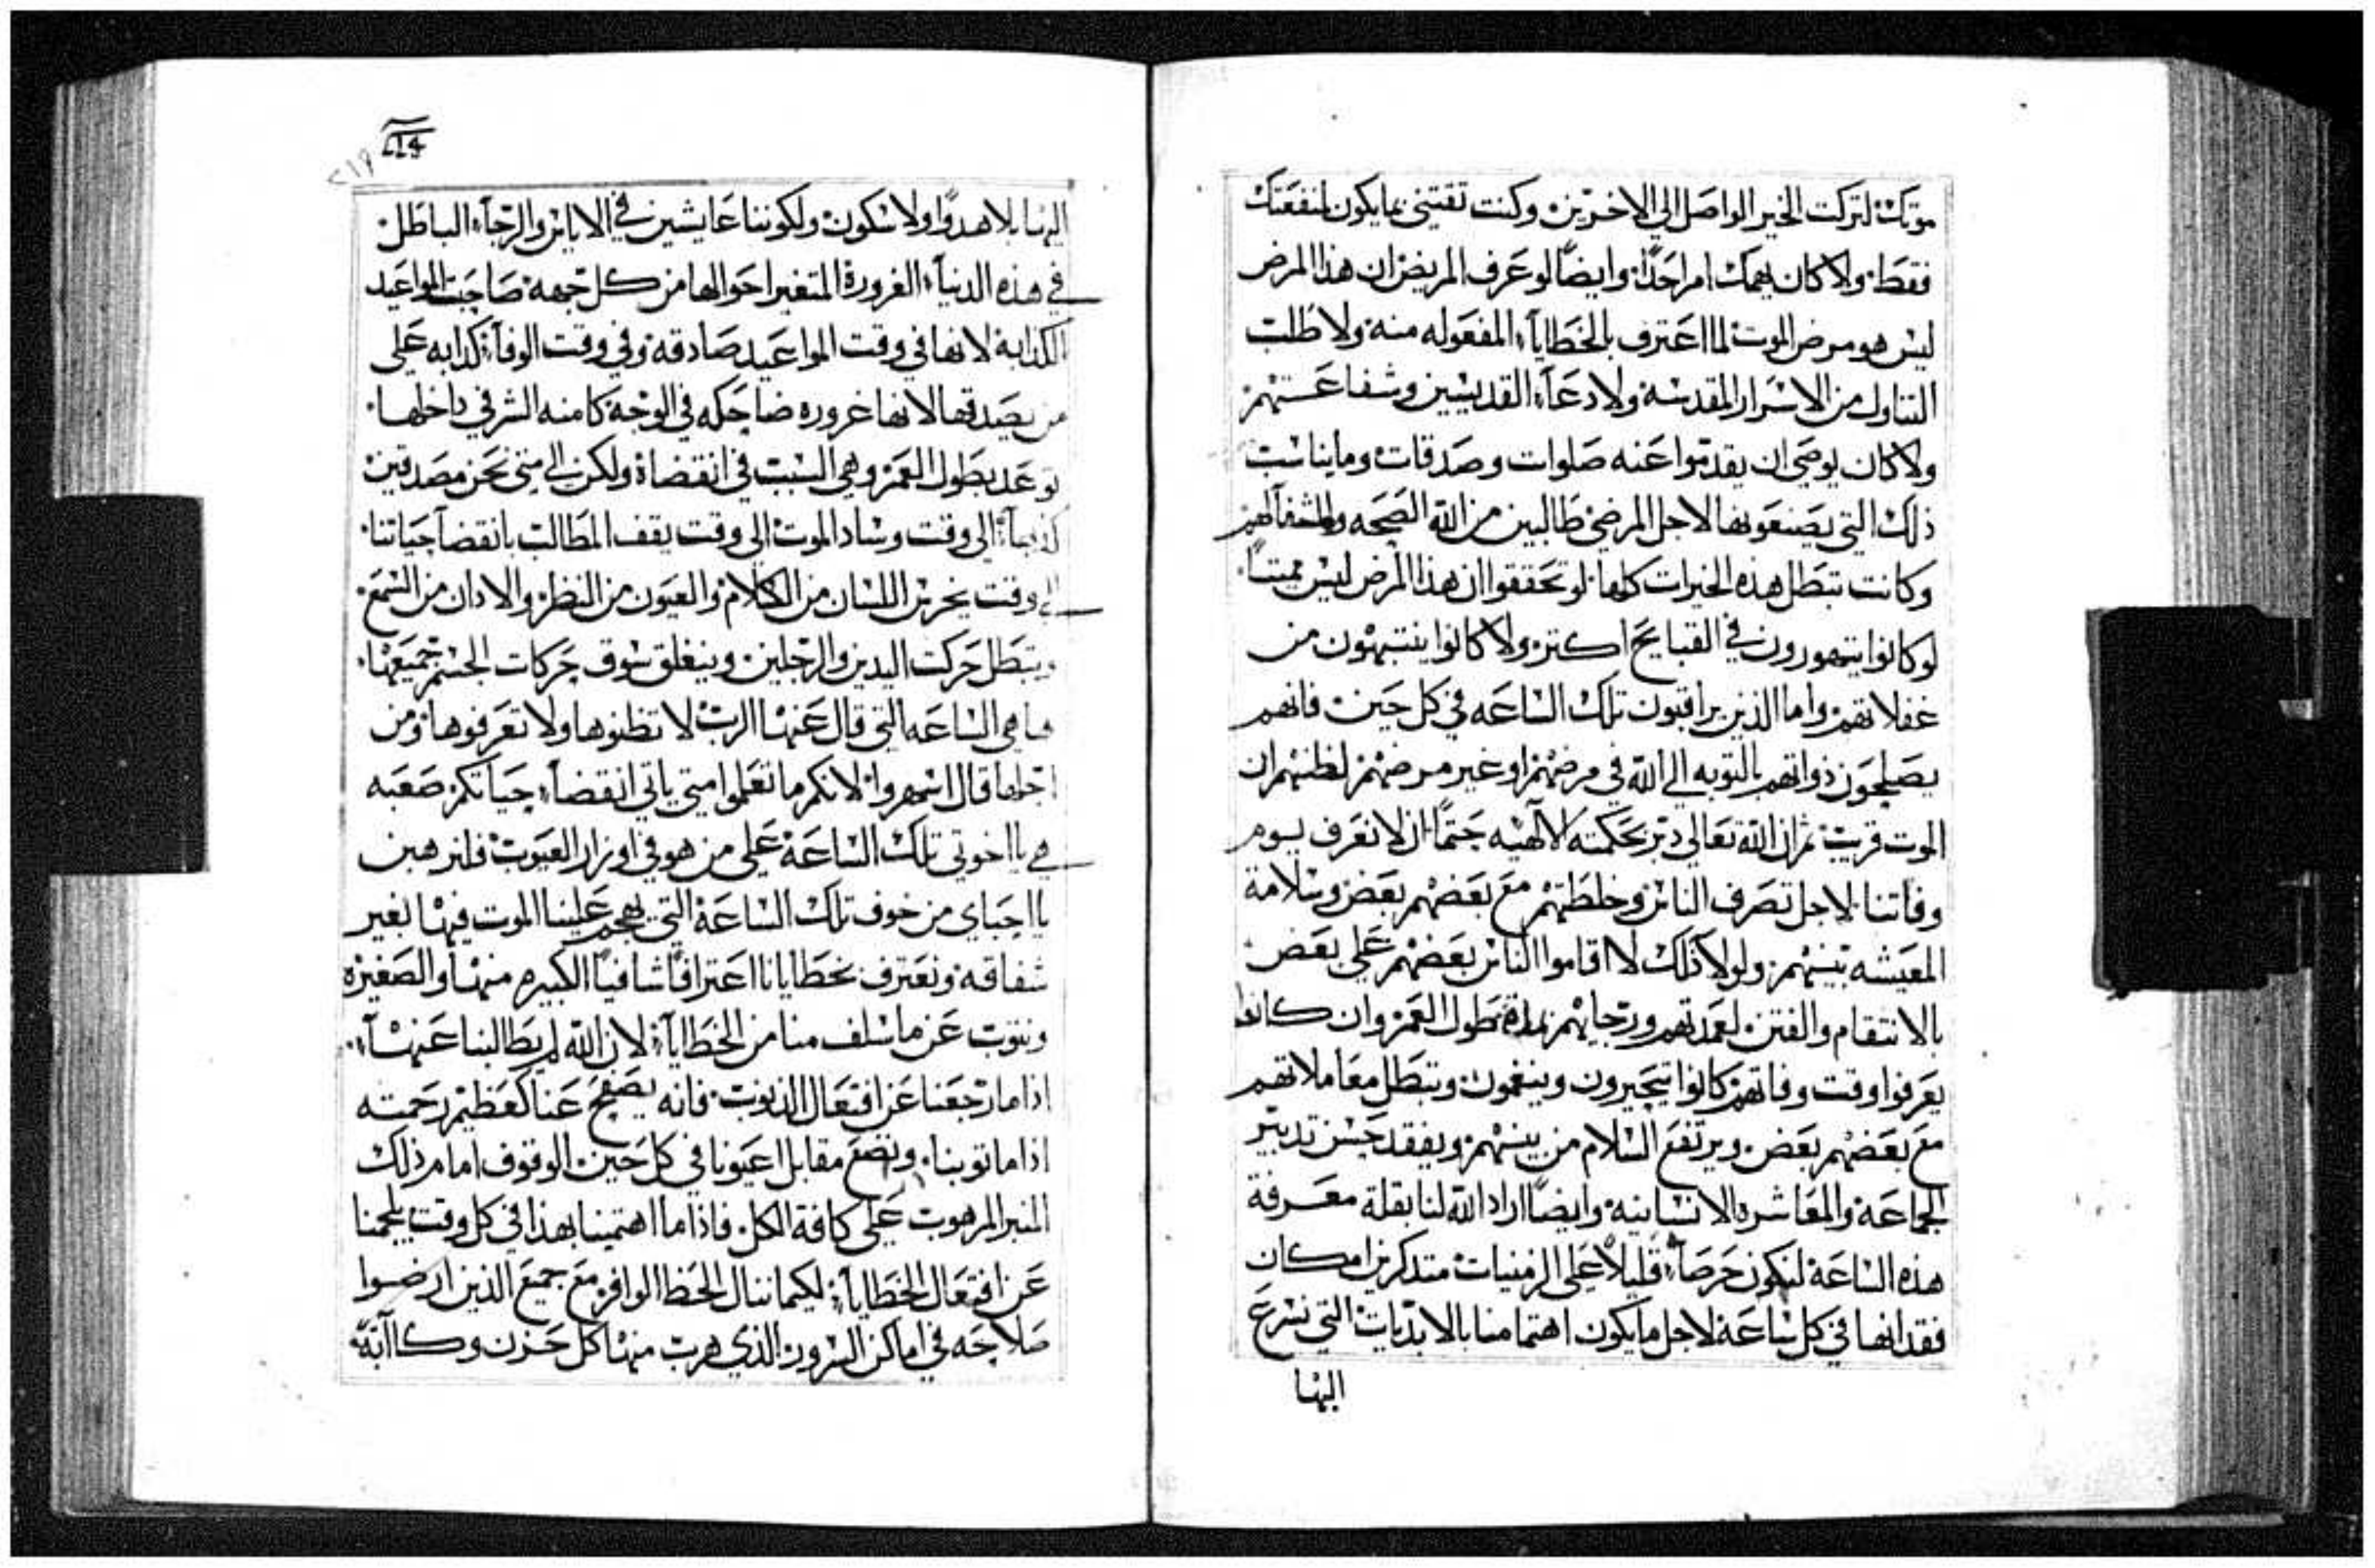 موتك لتركت الخير الواصل الي الاخرين وكنت تقتني مايكون لمنفعتك
فقط ولا كان يهمك امر احدًا وايضًا لو عرف المريض ان هذا المرض
ليس هو مرض الموت لما اعترف بالخطايا المفعوله منه ولا طلب
التناول من الاسرار المقدسه ولا دعاء القديسين وشفاعتهم
ولا كان يوصي ان يقدموا عنه صلوات وصدقات وما يناسب
ذلك التي يصنعونها لاجل المرضي طالبين من الله الصحه والشفا لهم
وكانت تبطل هذه الخيرات كلها لو تحققوا ان هذا المرض ليس مميتًا
لو كانوا يتهورون في القبايح اكتر ولا كانوا ينتبهون من
غفلاتهم واما الذين يراقبون تلك الساعه في كل حين فانهم
يصلحون ذواتهم بالتوبه الي الله في مرضهم او غير مرضهم لظنهم ان
الموت قريب ثم ان الله تعالي دبر بحكمته الالهيه حتمًا ان لا نعرف يوم
وفاتنا لاجل تصرف الناس وخلطتهم مع بعضهم بعض وسلامة
المعيشه بينهم ولولا ذلك لا اقاموا الناس بعضهم علي بعض
بالانتقام والفتن لعمدتهم ورجايهم بطول العمر وان كانوا
يعرفوا وقت وفاتهم كانوا يتحيرون وينغمون وتبطل معاملاتهم
مع بعضهم بعض ويرتفع السلام من بينهم ويفقد حسن تدبير
الجماعة والمعاشره الانسانيه وايضًا اراد الله لنا بقلة معرفة
هذه الساعة لنكون حرصآء قليلاً علي الزمنيات متدكرين امكان
فقدانها في كل ساعة لاجل مايكون اهتمامنا بالابديات التي نسرع
اليها
اليها بلا هدوًا ولا سكون ولكوننا عايشين في الاياس والرجاء الباطل
في هذه الدنياء الغرورة المتغير احوالها من كل جهة صاحبت المواعيد
الكدابة لانها في وقت المواعيد صادقة وفي وقت الوفاء كدابه علي
من يصدقها لانها غروره ضاحكه في الوجه كامنه الشر في داخلها
توعد بطول العمر وهي السبب في انقضاه ولكن الي متي نحن مصدقين
الي وقت وساد الموت الي وقت يقف المطالب بانقضا حياتنا
الي وقت يخرس اللسان من الكلام والعيون من النظر والادان من السمع
وتبطل حركت اليدين والرجلين وينغلق سوق حركات الجسم جميعها
هاهي الساعه التي قال عنها الرب لا تظنوها ولا تعرفوها ومن
اجلها قال اسهروا لانكم ما تعلموا متي ياتي انقضاء حياتكم صعبه
هي يا اخوتي تلك الساعة علي من هو في اوزار العيوب فلنرهبن
يا احباي من خوف تلك الساعة التي يهجم علينا الموت فيها بغير
شفاقه ونعترف بخطايانا اعترافًا شافيًا الكبيره منها والصغيره
ونتوب عن ماسلف منا من الخطايا لان الله لم يطالبنا عنها
اذا ما رجعنا عن افتعال الذنوب فانه يصفح عنا كعظيم رحمته
اذا ما توبنا ونضع مقابل اعيونا في كل حين الوقوف امام ذلك
المنبر المرهوب علي كافة الكل فاذا ما اهتمينا بهذا في كل وقت يلجمنا
عن افتعال الخطايا لكيما ننال الحظ الوافر مع جميع الذين ارضوا
صلاحه في اماكن السرور الذي هرب منها كل حزن وكاآبة